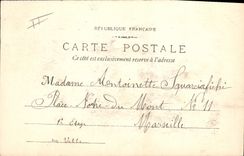 RÉPUBLIQUE FRANÇAISE
CARTE POSTALE
Ce côté est exclusivement réservé à l'adresse
Madame Antoinette Squarciafichi
Place Notre-Dame du Mont, N° 11
1er Etage Marseille
En Ville